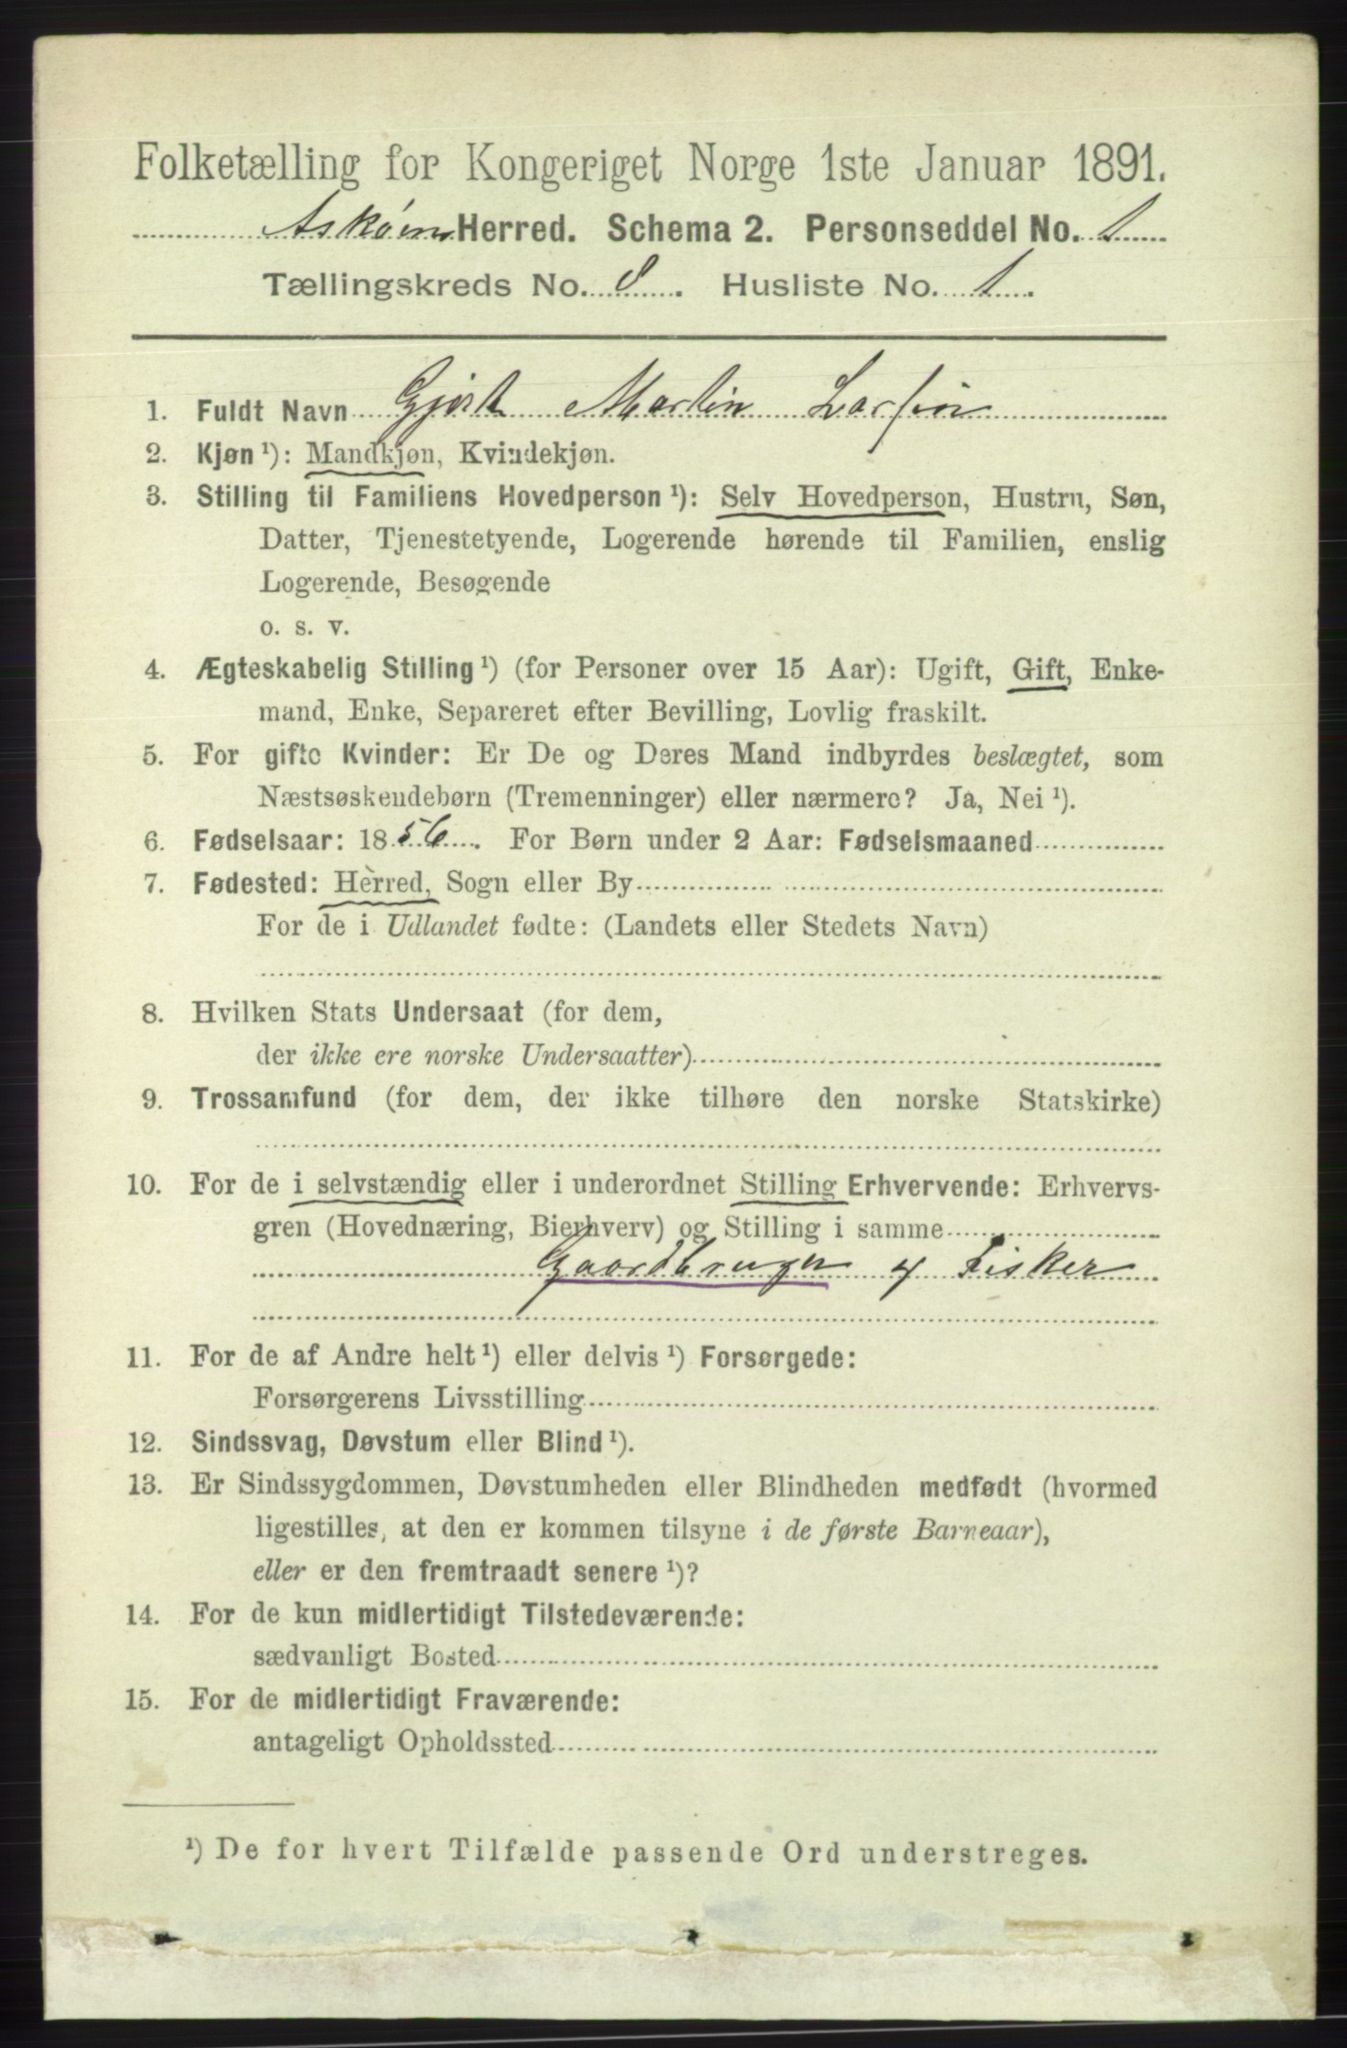 Folketælling for Kongeriget Norge 1ste Januar 1891.
Askøens Herred. Schema 2. Personseddel No. 1
Tællingskreds No. 8. Husliste No. 1.
1. Fuldt Navn Gjert Martin Larsen
2. Kjøn ¹): Mandkjøn, Kvindekjøn.
3. Stilling til Familiens Hovedperson ¹): Selv Hovedperson, Hustru, Søn,
Datter, Tjenestetyende, Logerende hørende til Familien, enslig
Logerende, Besøgende
o. s. v.
4. Ægteskabelig Stilling ¹) (for Personer over 15 Aar): Ugift, Gift, Enke-
mand, Enke, Separeret efter Bevilling, Lovlig fraskilt.
5. For gifte Kvinder: Er De og Deres Mand indbyrdes beslægtet, som
Næstsøskendebørn (Tremenninger) eller nærmere? Ja, Nei ¹).
6. Fødselsaar: 1856. For Børn under 2 Aar: Fødselsmaaned
7. Fødested: Herred, Sogn eller By
For de i Udlandet fødte: (Landets eller Stedets Navn)
8. Hvilken Stats Undersaat (for dem,
der ikke ere norske Undersaatter)
9. Trossamfund (for dem, der ikke tilhøre den norske Statskirke)
10. For de i selvstændig eller i underordnet Stilling Erhvervende: Erhvervs-
gren (Hovednæring, Bierhverv) og Stilling i samme
Gaardbruger og Fisker
11. For de af Andre helt ¹) eller delvis ¹) Forsørgede:
Forsørgerens Livsstilling
12. Sindssvag, Døvstum eller Blind ¹).
13. Er Sindssygdommen, Døvstumheden eller Blindheden medfødt (hvormed
ligestilles, at den er kommen tilsyne i de første Barneaar),
eller er den fremtraadt senere ¹)?
14. For de kun midlertidigt Tilstedeværende:
sædvanligt Bosted
15. For de midlertidigt Fraværende:
antageligt Opholdssted
¹) De for hvert Tilfælde passende Ord understreges.